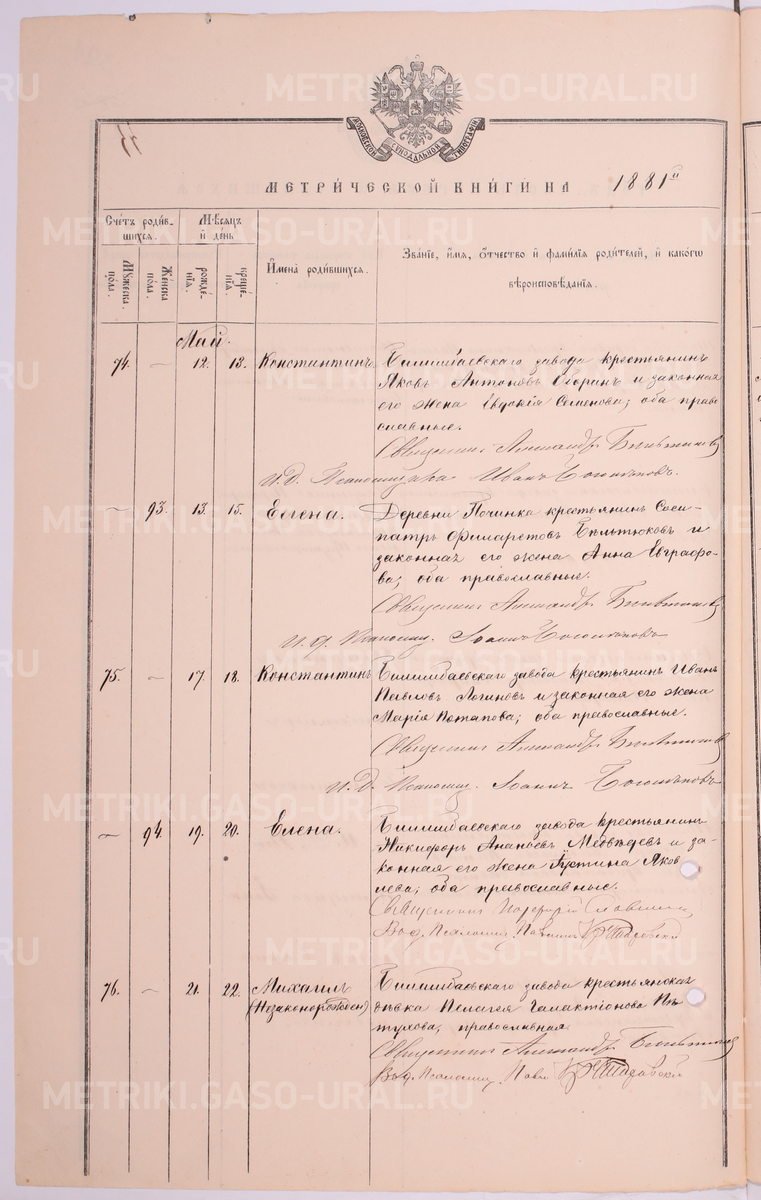 METRIKI.GASO-URAL.RU
МОСКОВСКОЙ СѴНОДАЛЬНОЙ ТИПОГРАФІИ
МЕТРИ́ЧЕСКОЙ КНИ́ГИ НА 1881й
Сче́тъ роди́в-
шихся.
Му́жеска
по́ла.
Же́нска
по́ла.
Мѣ́сяцъ
и҆ де́нь
рожде́-
нїѧ.
креще́-
нїѧ.
И҆мена̀ роди́вшихся.
Зва́нїе, и҆́мѧ, ѻ҆́тчество и҆ фами́лїѧ роди́телей, и҆ како́гѡ
вѣроисповѣ́данїѧ.
Май.
74. — 12. 13. Константинъ Билимбаевскаго завода крестьянинъ
Яковъ Антоновъ и законная
его жена Евдокія Семенова; оба право
славные.
Священникъ Александръ
И. Д. Псаломщика Иванъ
— 93. 13. 15. Елена. Деревни Починка крестьянинъ Соси-
патръ Филаретовъ Бѣлтюковъ и
законная его жена Анна Евграфо-
ва; оба православные.
Священникъ Александръ
и. д. Псаломщ. Іоаннъ
75. — 17. 18. Константинъ Билимбаевскаго завода крестьянинъ Иванъ
Павловъ Логиновъ и законная его жена
Марія Потапова; оба православные.
Священникъ Александръ
И. Д. Псаломщ. Іоаннъ
— 94. 19. 20. Елена. Билимбаевскаго завода крестьянинъ
Никифоръ Ананьевъ Медвѣдевъ и за-
конная его жена Іустина Яков
лева; оба православные.
Священникъ
Псаломщ.
76. — 21. 22. Михаилъ Билимбаевскаго завода крестьянская
(Незаконорожден) дѣвка Пелагея Галактіонова Пѣ
тухова, православная.
Священникъ Александръ
Псаломщ.